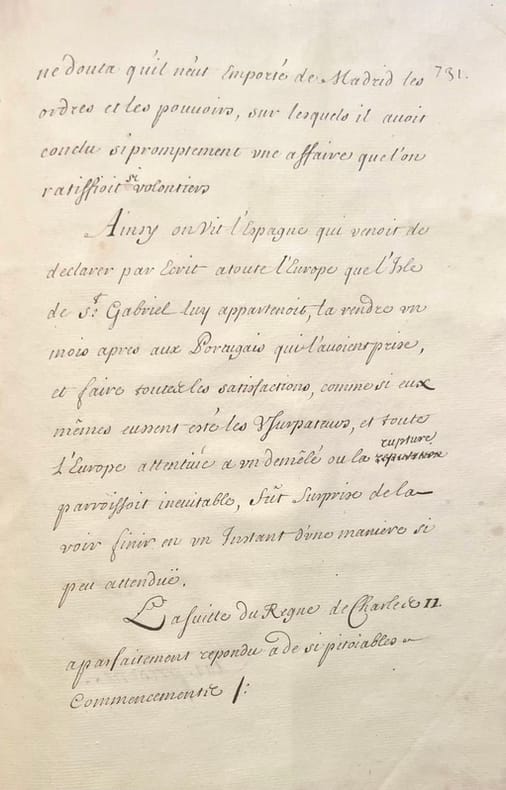 731.
ne douta qu'il n'eut Emporté de Madrid les
ordres et les pouvoirs, sur lesquels il avoit
conclu si promptement une affaire que l'on
ratiffioit si volontiers
Ainsy on Vit l'Espagne qui venoit de
declarer par Ecrit a toute l'Europe que l'Isle
de St. Gabriel luy appartenoit, la rendre un
mois apres aux Portugais qui l'avoient prise,
et faire toutes les satisfactions, comme si eux
mêmes eussent esté les Usurpateurs, et toute
L'Europe attentive a un demêlé ou la rupture
parroissoit inevitable, fût Surprise de la
voir finir en un Instant d'une maniere si
peu attenduë.
La suitte du Regne de Charles II.
a parfaitement repondu a de si pitoiables
Commencements /: